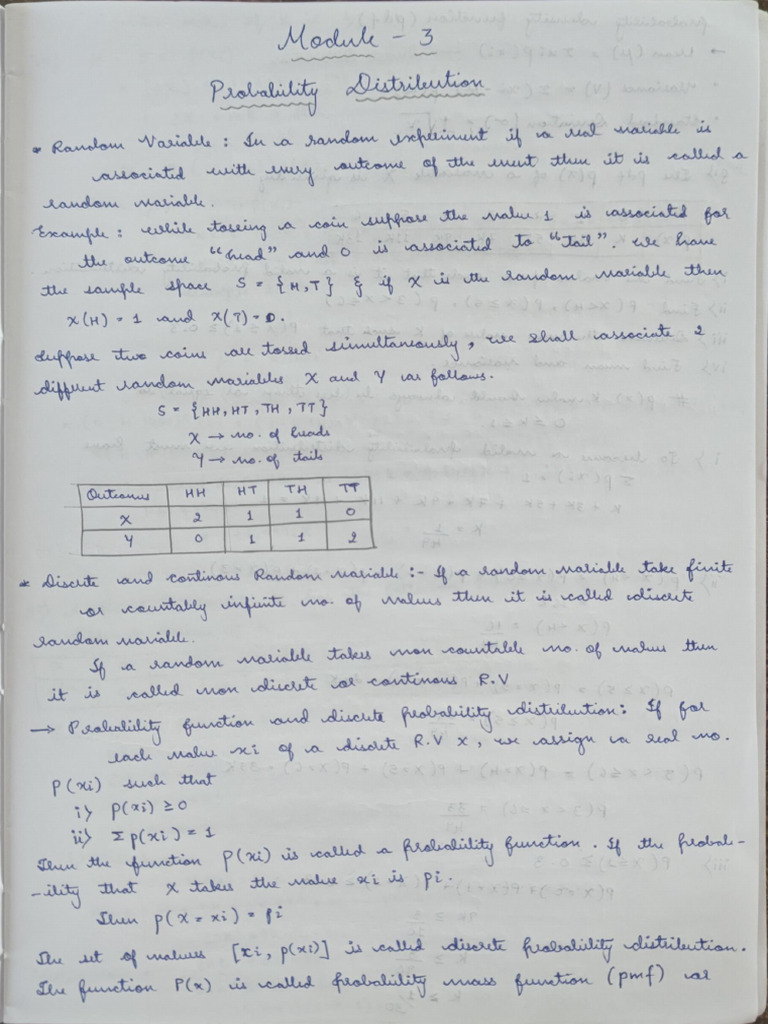 Module - 3
Probability Distribution
* Random Variable : In a random expreiment if a real variable is
associated with every outcome of the event then it is called a
random variable.
Example : while tossing a coin suppose the value 1 is associated for
the outcome "head" and 0 is associated to "tail". We have
the sample space S = {H,T} & if X is the random variable then
X(H) = 1 and X(T) = 0.
Suppose two coins are tossed simultaneously, we shall associate 2
different random variables X and Y as follows.
S = {HH, HT, TH, TT}
X → no. of heads
Y → no. of tails
Outcomes HH HT TH TT
X 2 1 1 0
Y 0 1 1 2
* Discrete and continous Random variable :- If a random variable take finite
or countably infinite no. of values then it is called discrete
random variable.
If a random variable takes non countable no. of values then
it is called non discrete or continous R.V
→ Probability function and discrete probability distribution: If for
each value xi of a discrete R.V X, we assign a real no.
P(xi) such that
i> p(xi) ≥ 0
ii> Σp(xi) = 1
Then the function P(xi) is called a probability function. If the probab-
-ility that X takes the value xi is pi.
Then p(X = xi) = pi
The set of values [xi, p(xi)] is called discrete probability distribution.
The function P(x) is called probability mass function (pmf) or